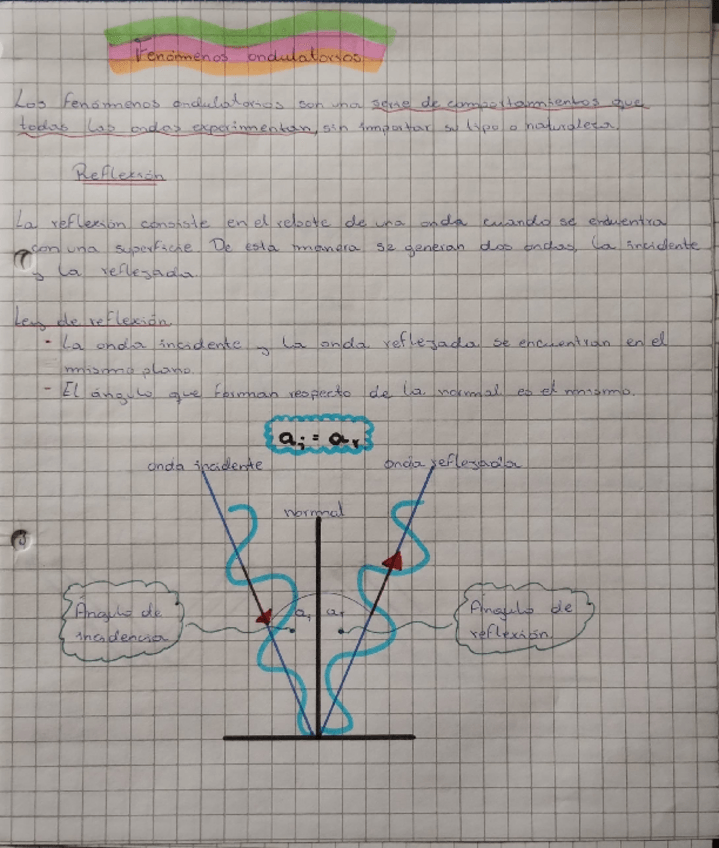 Fenómenos ondulatorios
Los fenómenos ondulatorios son una serie de comportamientos que
todas las ondas experimentan, sin importar su tipo o naturaleza.
Reflexión
La reflexión consiste en el rebote de una onda cuando se encuentra
con una superficie. De esta manera se generan dos ondas, la incidente
y la reflejada.
Ley de reflexión
- La onda incidente y la onda reflejada se encuentran en el
mismo plano.
- El ángulo que forman respecto de la normal es el mismo.
ai = ar
onda incidente
onda reflejada
normal
ai
ar
Ángulo de
incidencia
Ángulo de
reflexión